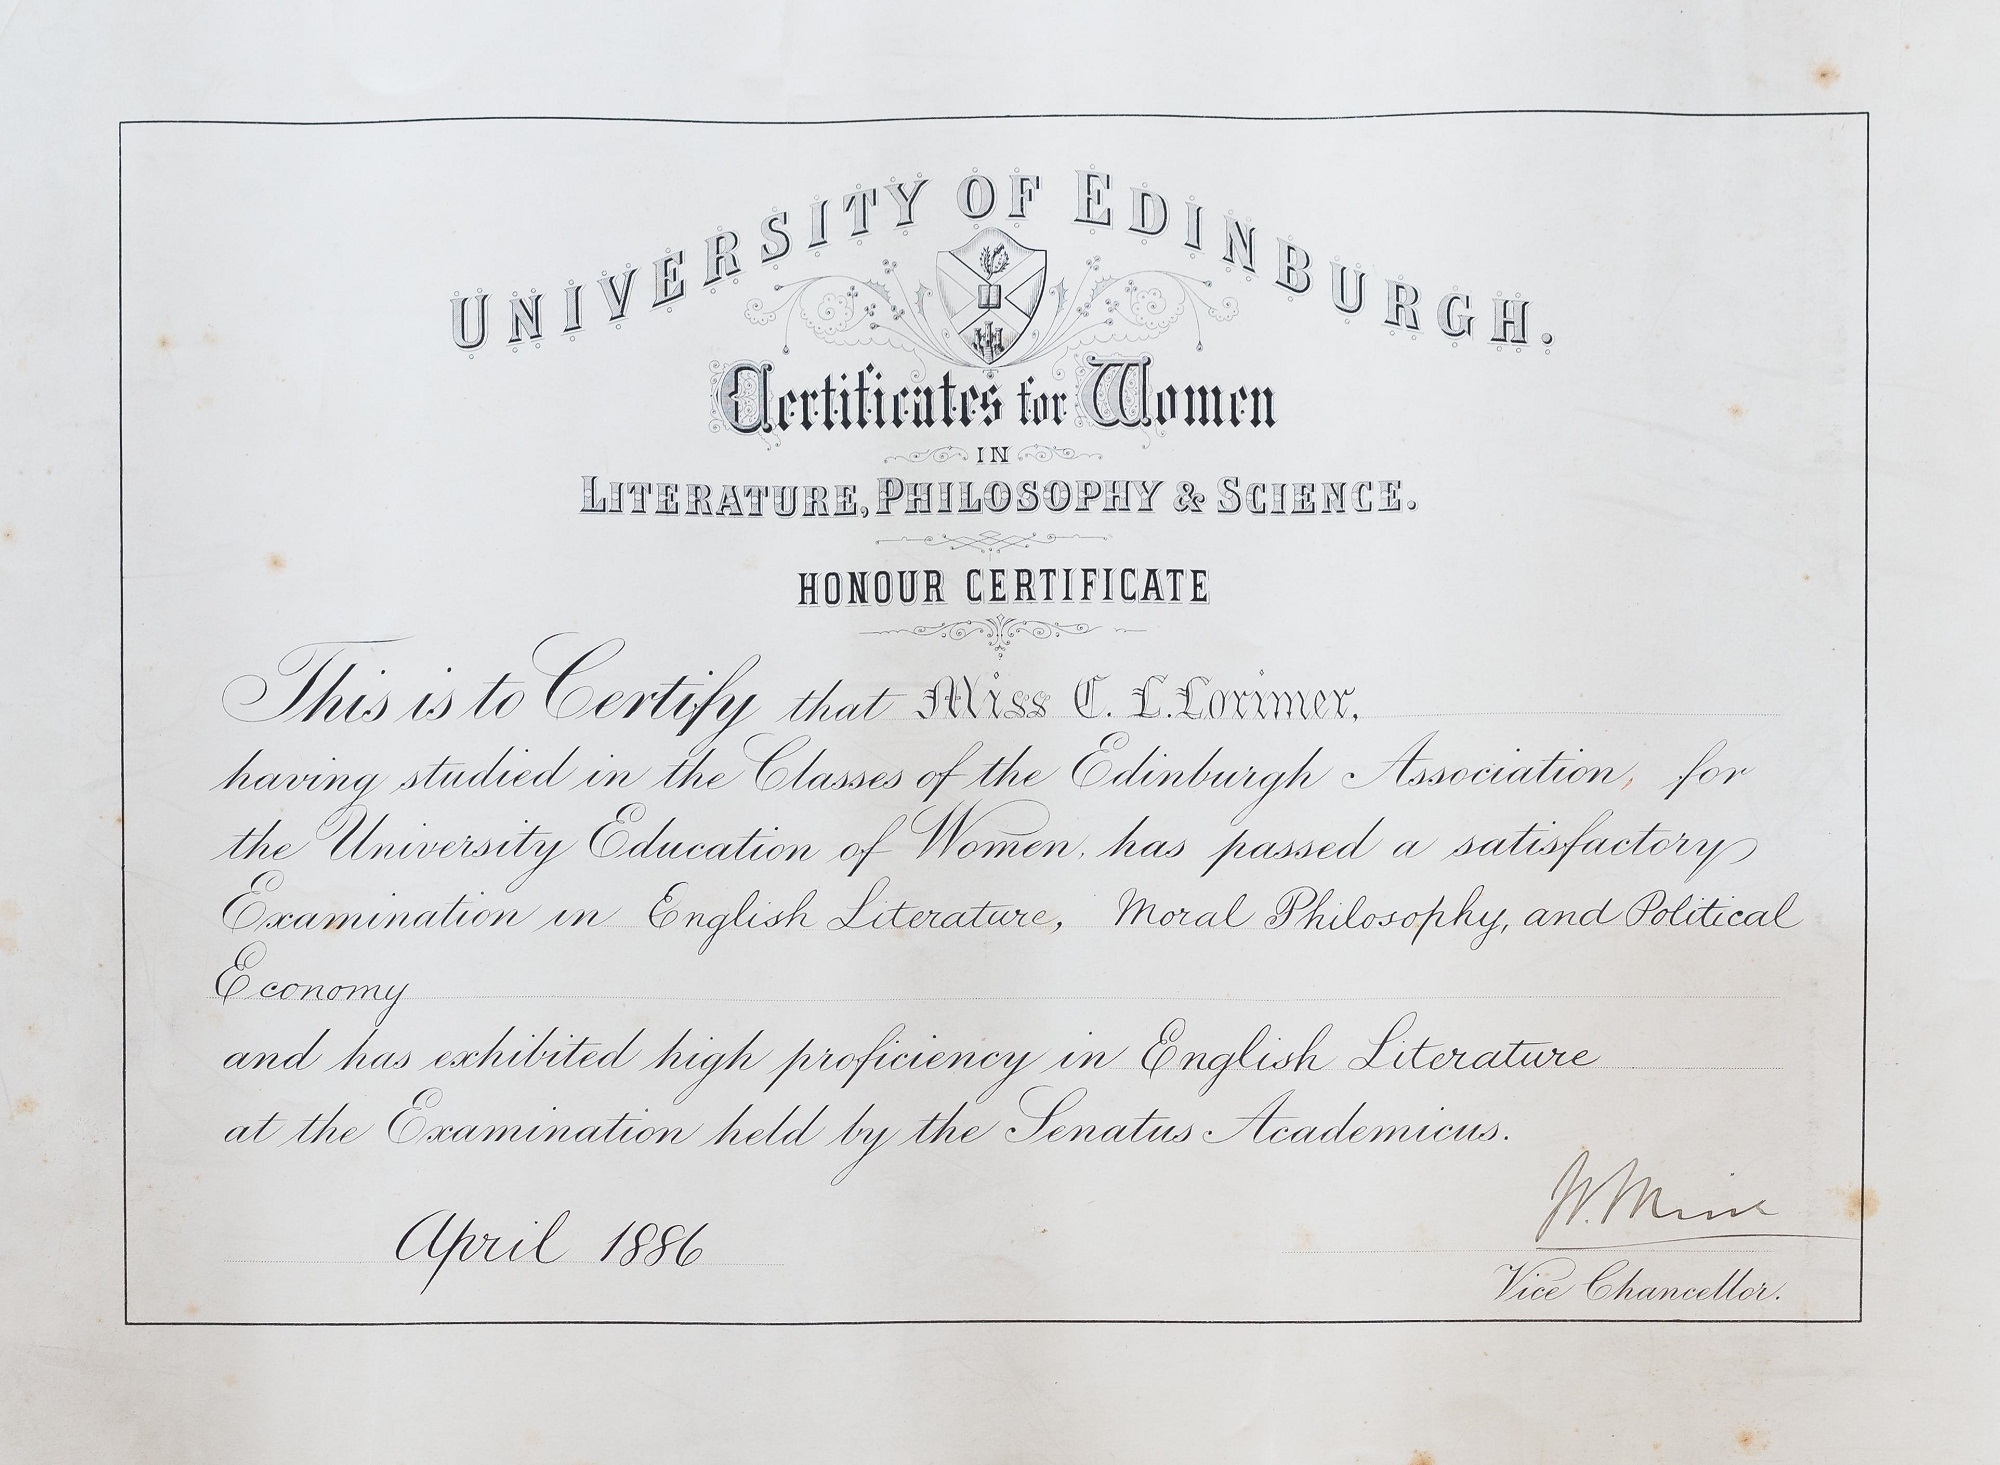 UNIVERSITY OF EDINBURGH.
Certificates for Women
IN
LITERATURE, PHILOSOPHY & SCIENCE.
HONOUR CERTIFICATE
This is to Certify that Miss C. L. Lorimer,
having studied in the Classes of the Edinburgh Association, for
the University Education of Women, has passed a satisfactory
Examination in English Literature, Moral Philosophy, and Political
Economy
and has exhibited high proficiency in English Literature
at the Examination held by the Senatus Academicus.
W. Muir
April 1886
Vice Chancellor.